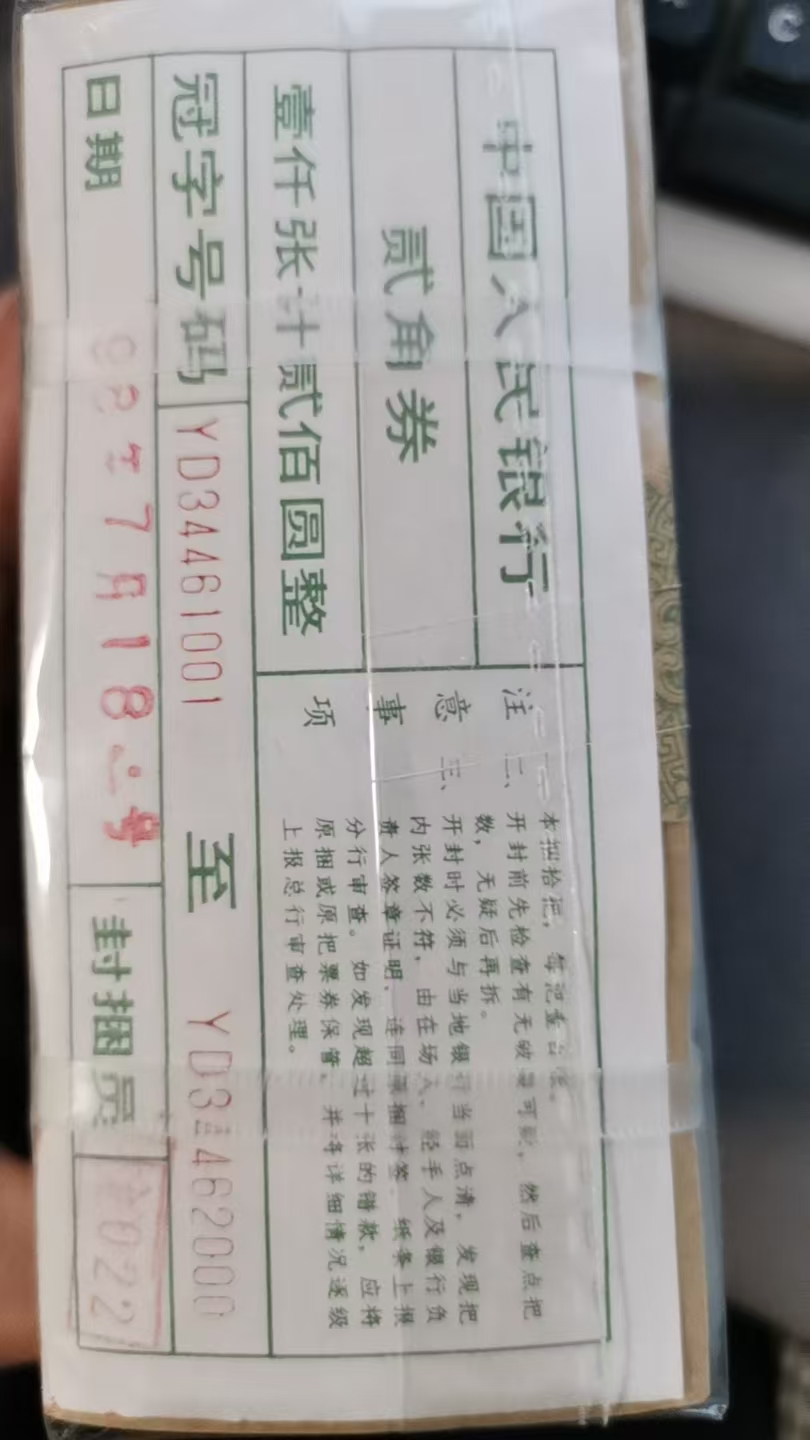 中国人民银行
贰角券
壹仟张计贰佰圆整
冠字号码 YD34461001 至 YD34462000
日期 92年7月18号 封捆员 022
注意事项
一、本捆拾把,每把壹百张。
二、开封前先检查有无破 可疑,然后查点把
数,无疑后再拆。
三、开封时必须与当地银行当面点清,发现把
内张数不符,由在场人、经手人及银行负
责人签章证明,连同原捆封签、纸条上报
分行审查。如发现超过十张的错款,应将
原捆或原把票券保管,并将详细情况逐级
上报总行审查处理。